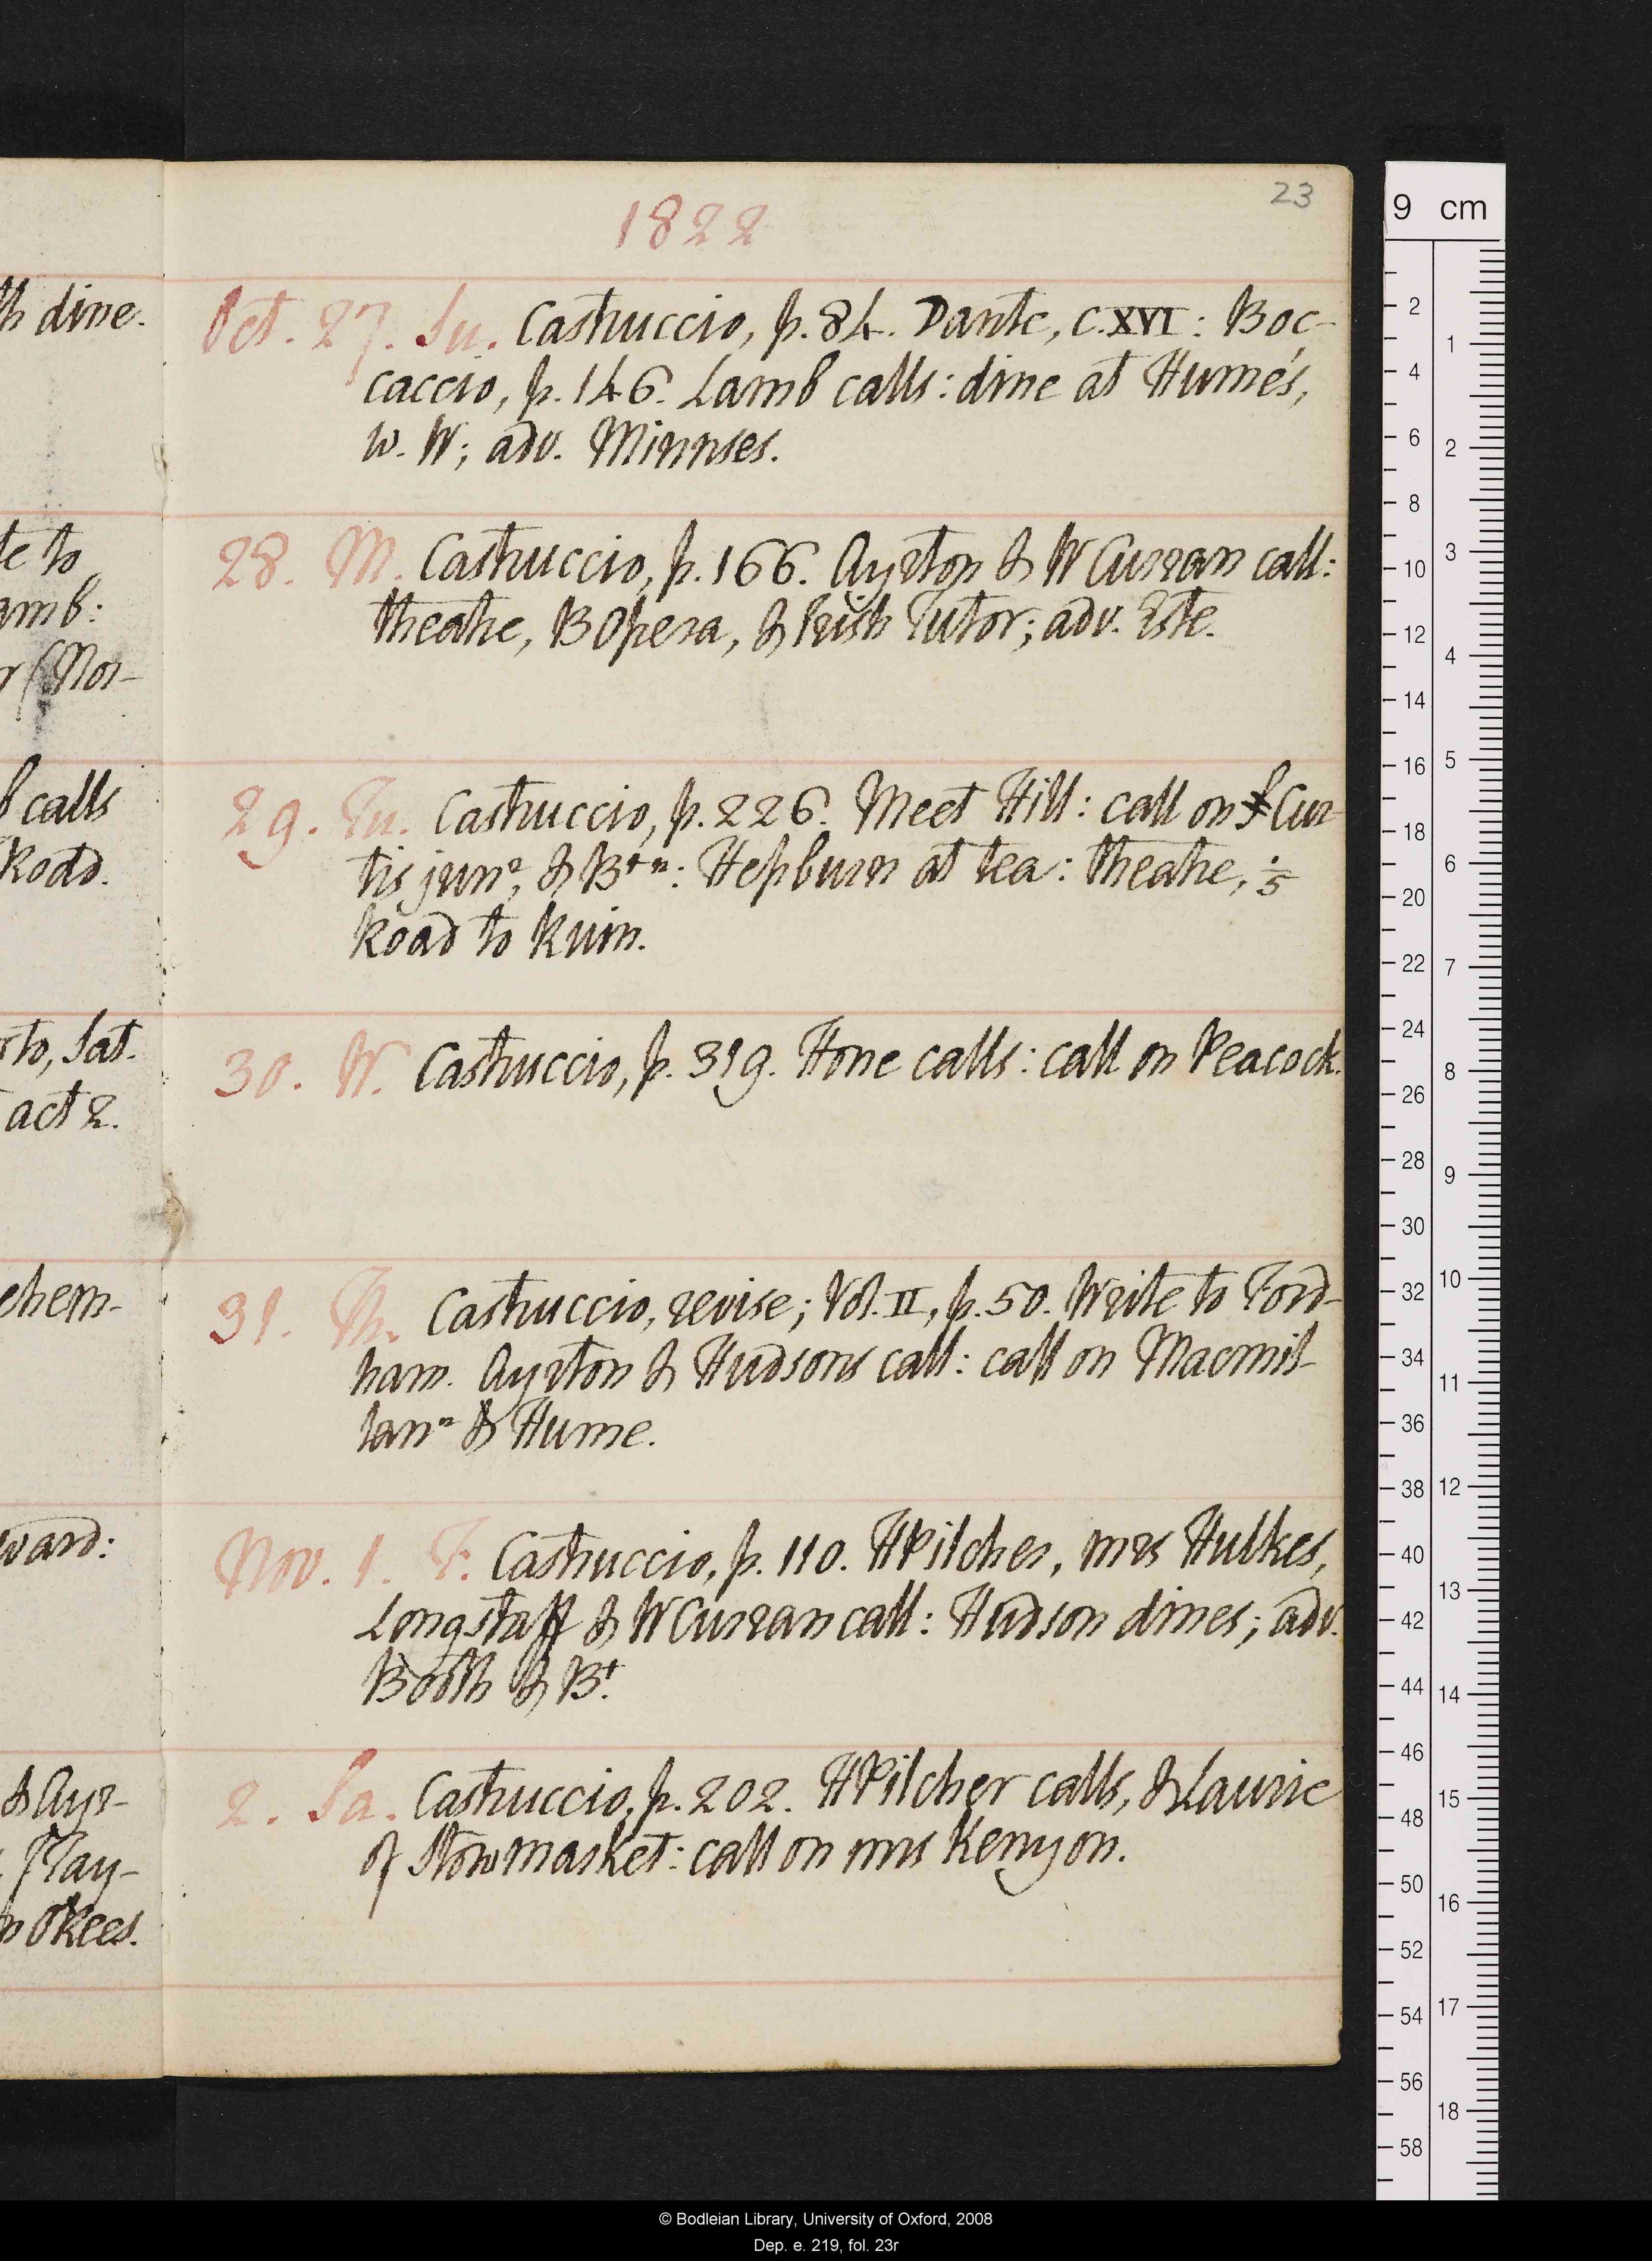 23
1822
h dine.
Oct. 27. Su. Castruccio, p. 84. Dante, c. XVI: Boc-
caccio, p. 146. Lamb calls: dine at Hume's,
w. W; adv. Minnses.
te to
amb:
r (Nor-
28. M. Castruccio, p. 166. Ayrton & W Curran call:
theatre, B Opera, & Irish Tutor; adv. Este.
b calls
Road.
29. Tu. Castruccio, p. 226. Meet Hill: call on Cur
tis junr, & Bt n: Hepburn at tea: theatre, ⅕
Road to Ruin.
rto, Sat.
act 2.
30. W. Castruccio, p. 319. Hone calls: call on Peacock.
chem-
31. Th. Castruccio, revise; Vol. II, p. 50. Write to Ford-
ham. Ayrton & Hudsons call: call on Macmil-
lan n & Hume.
ward:
Nov. 1. F. Castruccio, p. 110. H Pilcher, mrs Hulkes,
Longstaff & W Curran call: Hudson dines; adv.
Booth & Bt.
& Ayr-
Play-
OKees.
2. Sa. Castruccio, p. 202. H Pilcher calls, & Laurie
of Stowmarket: call on mrs Kenyon.
9 cm
2
4
6
8
10
12
14
16
18
20
22
24
26
28
30
32
34
36
38
40
42
44
46
48
50
52
54
56
58
1
2
3
4
5
6
7
8
9
10
11
12
13
14
15
16
17
18
© Bodleian Library, University of Oxford, 2008
Dep. e. 219, fol. 23r